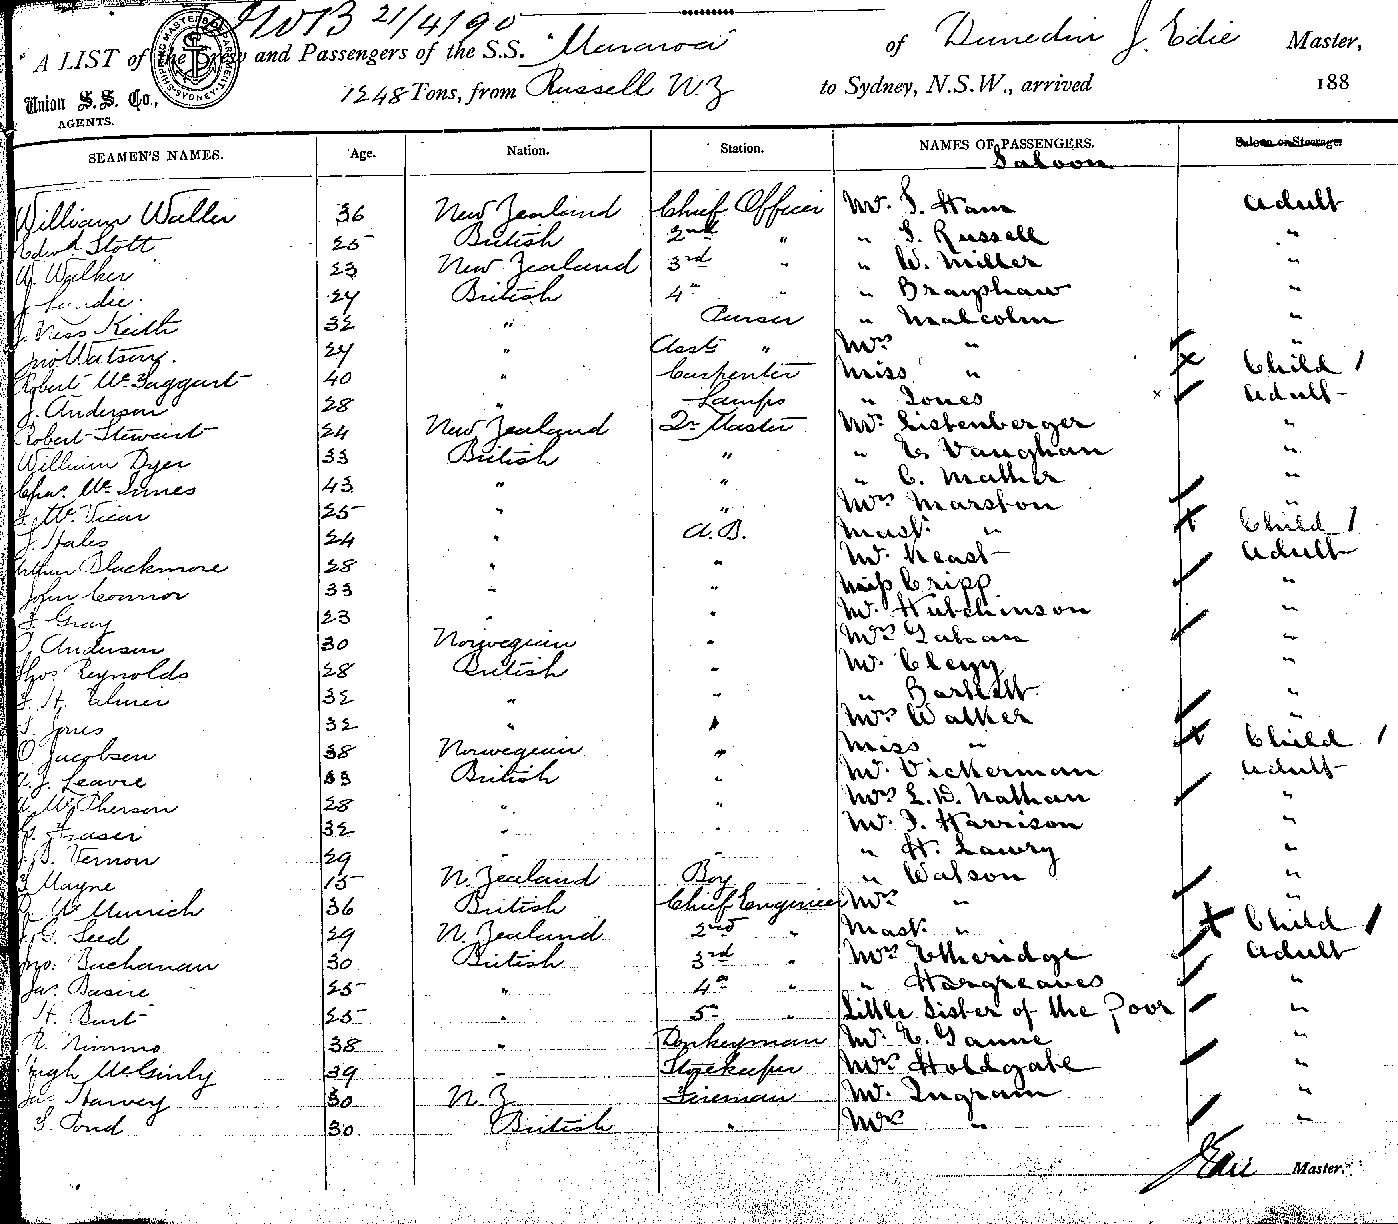 21/4/90
A LIST of the Crew and Passengers of the S.S. "Mararoa" of Dunedin J. Edie Master,
Union S.S. Co., AGENTS. 1248 Tons, from Russell N.Z to Sydney, N.S.W., arrived 188
SEAMEN'S NAMES. Age. Nation. Station. NAMES OF PASSENGERS. Saloon or Steerage
Saloon
William Waller 36 New Zealand Chief Officer Mr. S. Ham Adult
Edwd Stott 25 British 2nd " " S. Russell "
W. Walker 23 New Zealand 3rd " " W. Miller "
J. 24 British 4th " " Brayshaw "
J. Ness Keith 32 " Purser " Malcolm "
Jno Watson. 24 " Asst " Mrs " "
Robert McTaggart 40 " Carpenter Miss " Child 1
J. Anderson 28 " Lamps " Jones Adult
Robert Stewart 24 New Zealand Qr Master Mr. Listenberger "
William Dyer 33 British " " E. Vaughan "
Chas. McInnes 43 " " " C. Mather "
McVicar 25 " " Mrs Marston "
J. Hales 24 " A.B. Mast. " Child 1
Arthur Blackmore 28 " " Mr. Neast Adult
John Connor 33 " " Miss Cripp "
J. Gray 23 " " Mr. Hutchinson "
Anderson 30 Norwegian " Mrs Gahan "
Thos Reynolds 28 British " Mr. Clegg "
H. Elmer 32 " " " Bartlett "
S. Jones 32 " " Mrs Walker "
O Jacobsen 38 Norwegian " Miss " Child 1
J. Leavre 33 British " Mr. Vickerman Adult
McPherson 28 " " Mrs L.D. Nathan "
Fraser 32 " " Mr. J. Harrison "
Vernon 29 " " " H. Lawry "
Mayne 15 N. Zealand Boy " Watson "
McMurrich 36 British Chief Engineer Mrs " "
G. Seed 29 N. Zealand 2nd " Mast. " Child 1
Jno. Buchanan 30 British 3rd " Mrs Etheridge Adult
Jas. Basire 25 " 4th " " Hargreaves "
H. Burt 25 " 5th " Little Sister of the Poor "
N. Nimmo 38 " Donkeyman Mr. E. Gaune "
Hugh McGinly 39 " Storekeeper Mrs Holdgate "
Jas Harvey 30 N.Z. Fireman Mr. Ingram "
S. Pond 30 British " Mrs " "
J Edie Master.